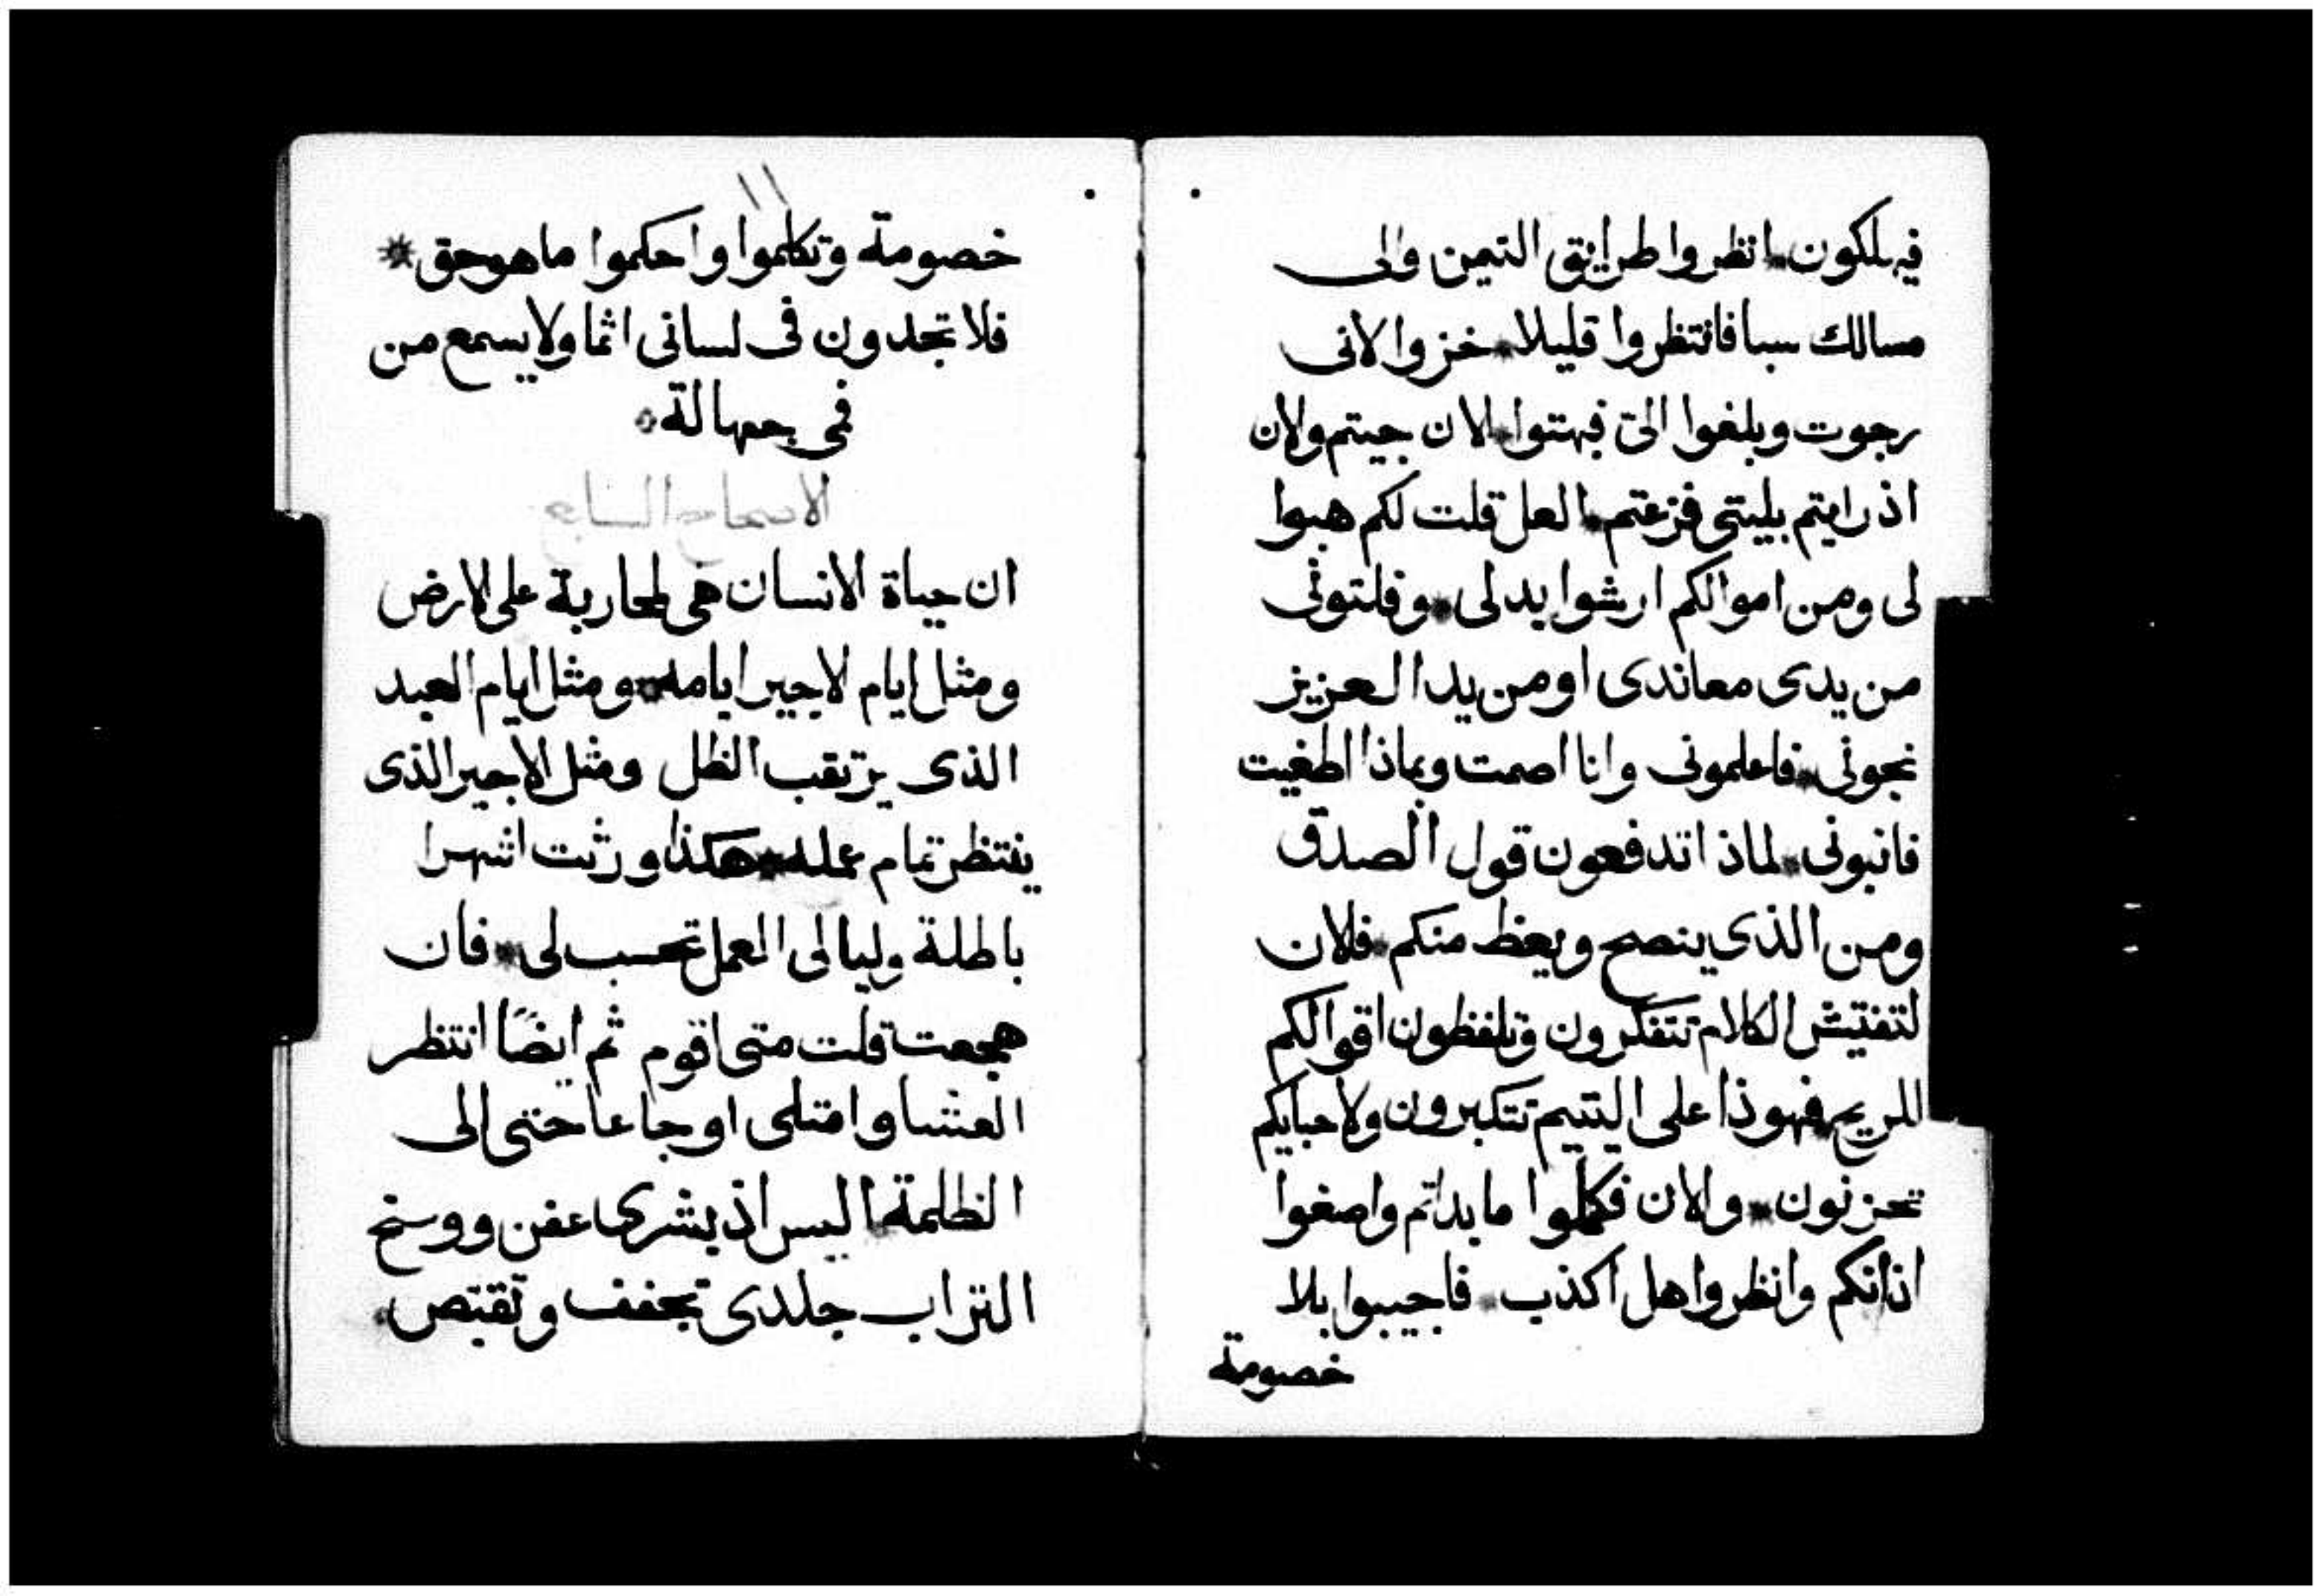 فيهلكون * انظروا طرايق التيمن والى
مسالك سبا فانتظروا قليلا * خزوا لانى
رجوت وبلغوا الىّ فبهتوا * الان جيتم والان
اذ رايتم بليتى فزعتم * العل قلت لكم هبوا
لى ومن اموالكم ارشوا بدلى * وفلتونى
من يدى معاندى او من يد العزيز
نجونى * فاعلمونى وانا اصمت وبماذا اطغيت
فانبونى * لماذا تدفعون قول الصدق
ومن الذى ينصح ويعظ منكم * فلان
لتفتيش الكلام تتفكرون وتلفظون اقوالكم
للريح * فهوذا على اليتيم تتكبرون ولاحبايكم
تحزنون * والان فكملوا ما بداتم واصغوا
اذانكم وانظروا هل اكذب * فاجيبوا بلا
خصومة
١١
خصومة وتكلموا واحكموا ما هو حق *
فلا تجدون فى لسانى اثما ولا يسمع من
فمى جهالة *
الاصحاح السابع
ان حياة الانسان هى لمحاربة على الارض
ومثل ايام الاجير ايامه * ومثل ايام العبد
الذى يرتقب الظل ومثل الاجير الذى
ينتظر تمام عمله * هكذا ورثت اشهرا
باطلة وليالى العمل تحسب لى * فان
هجعت قلت متى اقوم ثم ايضًا انتظر
العشا وامتلى اوجاعا حتى الى
الظلمة * اليس اذ بشرى عفن ووسخ
التراب جلدى تجفف وتقبّص *